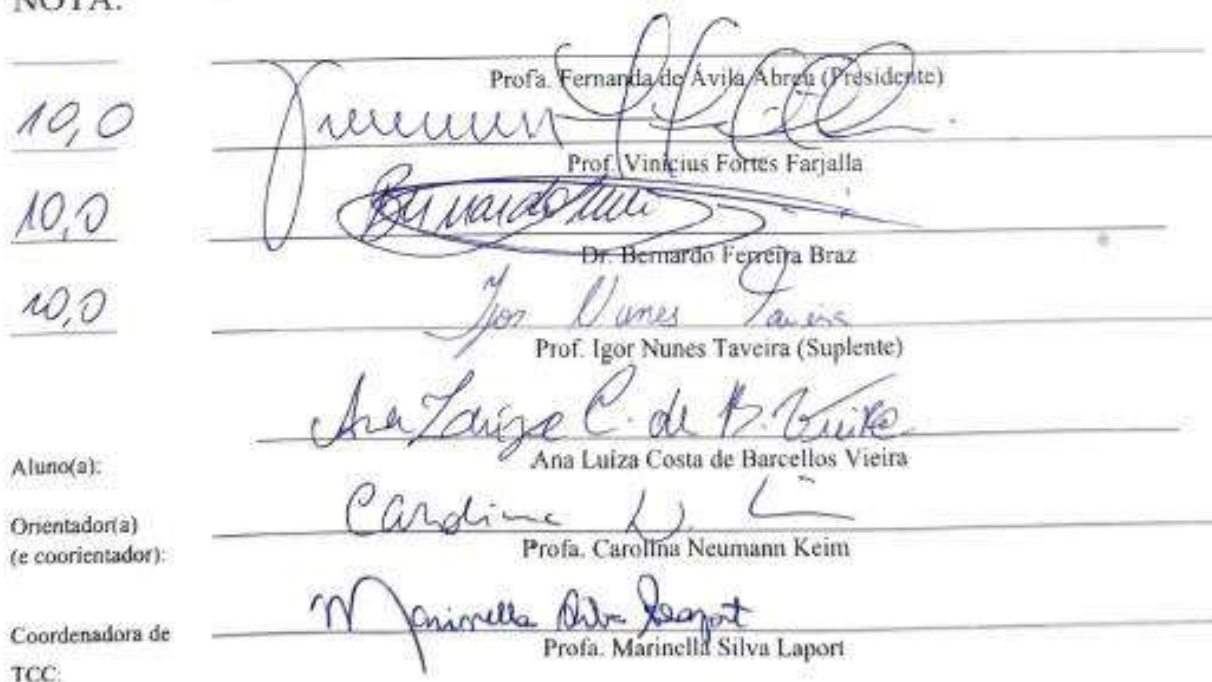 NOTA:
Profa. Fernanda de Ávila Abreu (Presidente)
10,0
Prof. Vinicius Fortes Farjalla
10,0
Dr. Bernardo Ferreira Braz
10,0
Igor Nunes Taveira
Prof. Igor Nunes Taveira (Suplente)
Ana Luiza C. de B. Vieira
Aluno(a):
Ana Luíza Costa de Barcellos Vieira
Carolina N.
Orientador(a)
(e coorientador):
Profa. Carolina Neumann Keim
Marinella Silva Laport
Coordenadora de
TCC:
Profa. Marinella Silva Laport